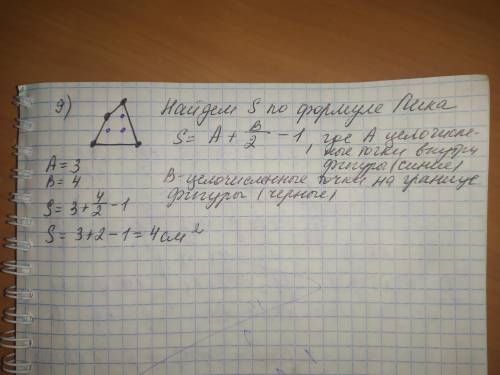 9) Найдем S по формуле Пика
S = A + B/2 - 1, где А целочисле-
нные точки внутри
фигуры (синие)
В - целочисленные точки на границе
фигуры (черные)
A = 3
B = 4
S = 3 + 4/2 - 1
S = 3 + 2 - 1 = 4 см²